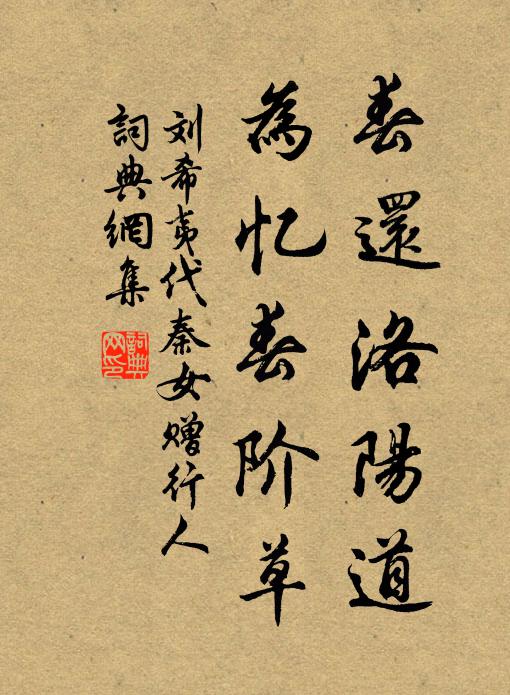 春還洛陽道
為忆春阶草
刘希夷代秦女赠行人
詞典網集
詞典网印